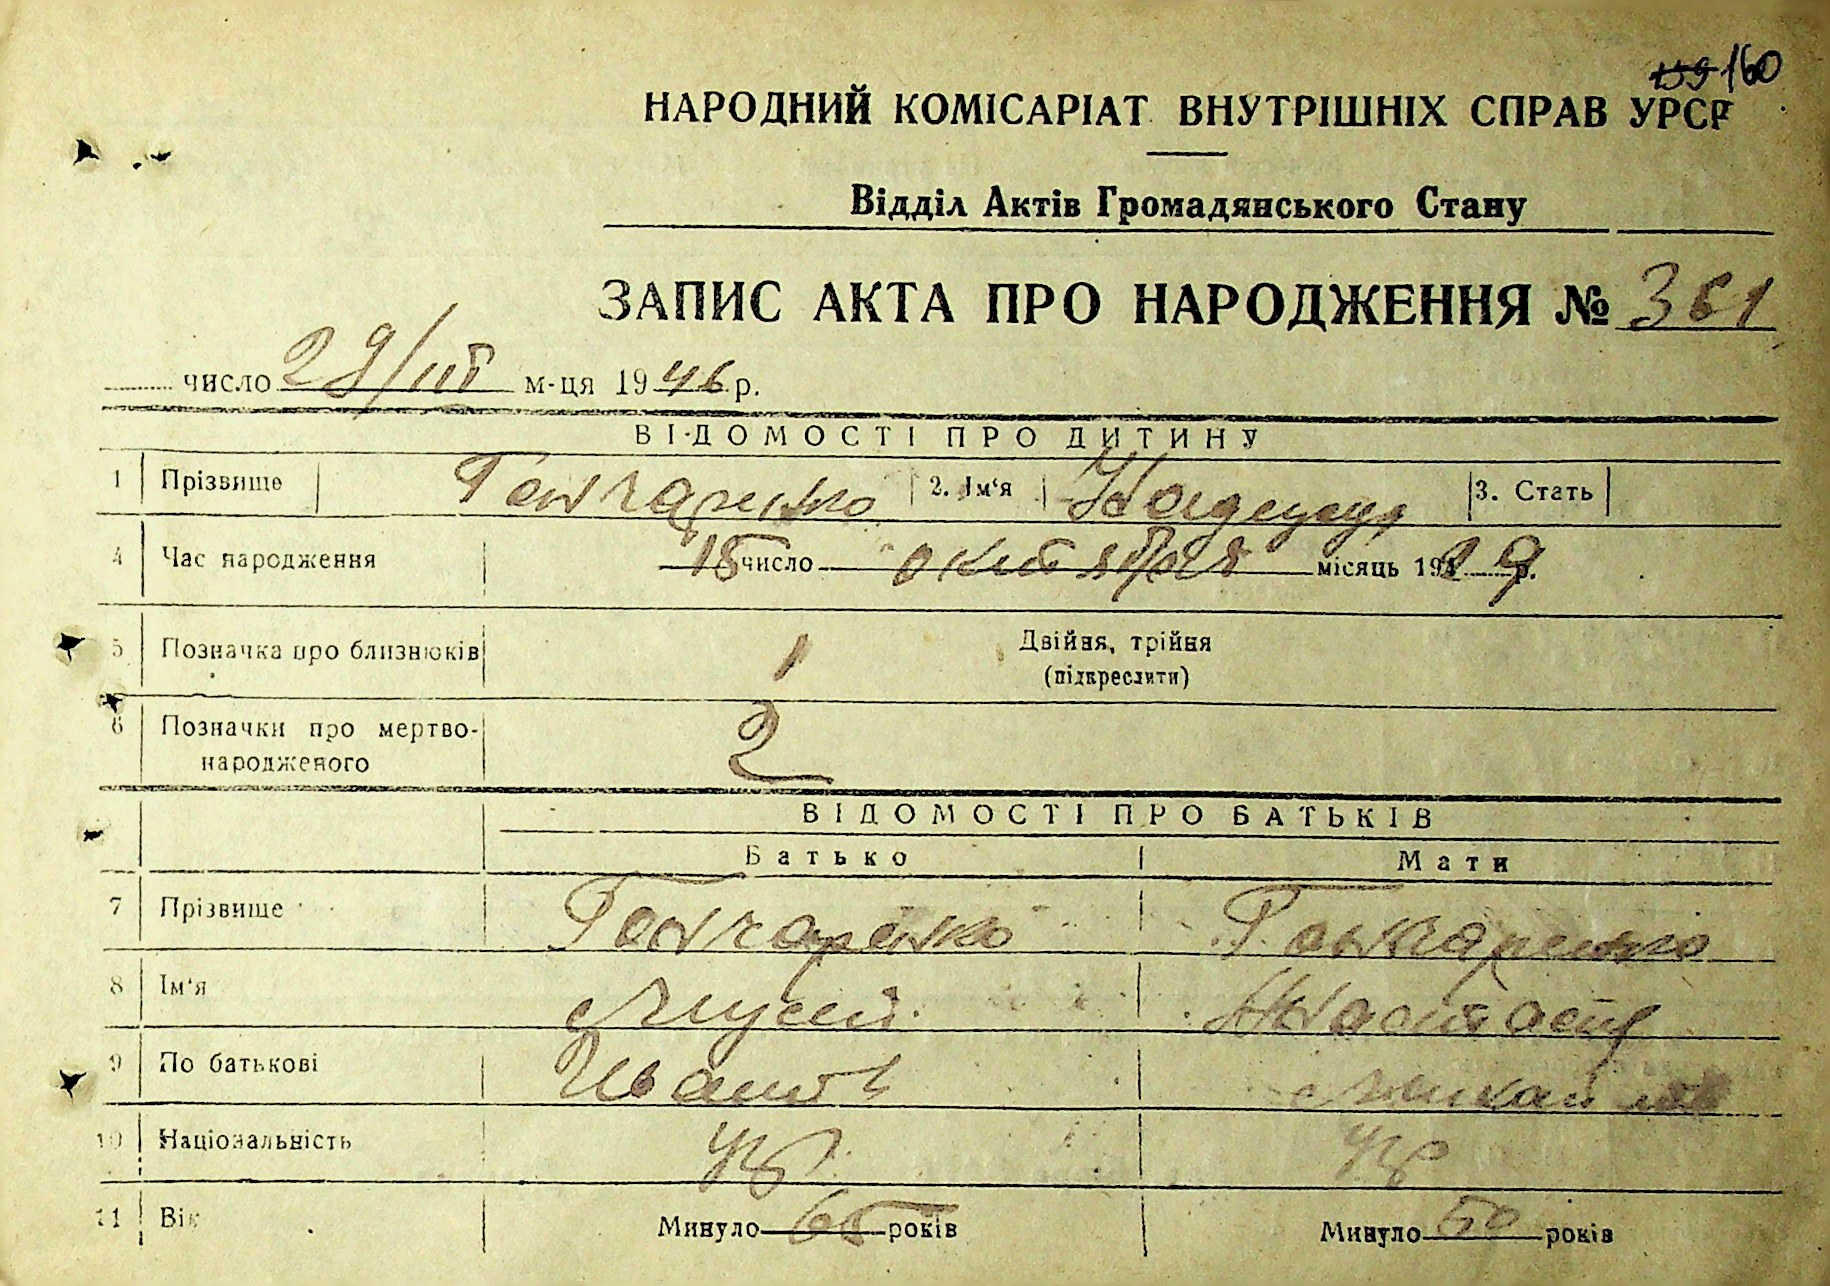 159 160
НАРОДНИЙ КОМІСАРІАТ ВНУТРІШНІХ СПРАВ УРСР
Відділ Актів Громадянського Стану
ЗАПИС АКТА ПРО НАРОДЖЕННЯ № 361
число 29/III м-ця 1946 р.
ВІДОМОСТІ ПРО ДИТИНУ
1 Прізвище Гончаренко 2. Ім'я 3. Стать
4 Час народження 15 число октября місяць 1919 р.
5 Позначка про близнюків 1 Двійня, трійня
(підкреслити)
6 Позначки про мертво-
народженого 2
ВІДОМОСТІ ПРО БАТЬКІВ
Батько Мати
7 Прізвище Гончаренко Гончаренко
8 Ім'я Мусий Настасия
9 По батькові Иванов
10 Національність Укр Укр
11 Вік Минуло 65 років Минуло 50 років